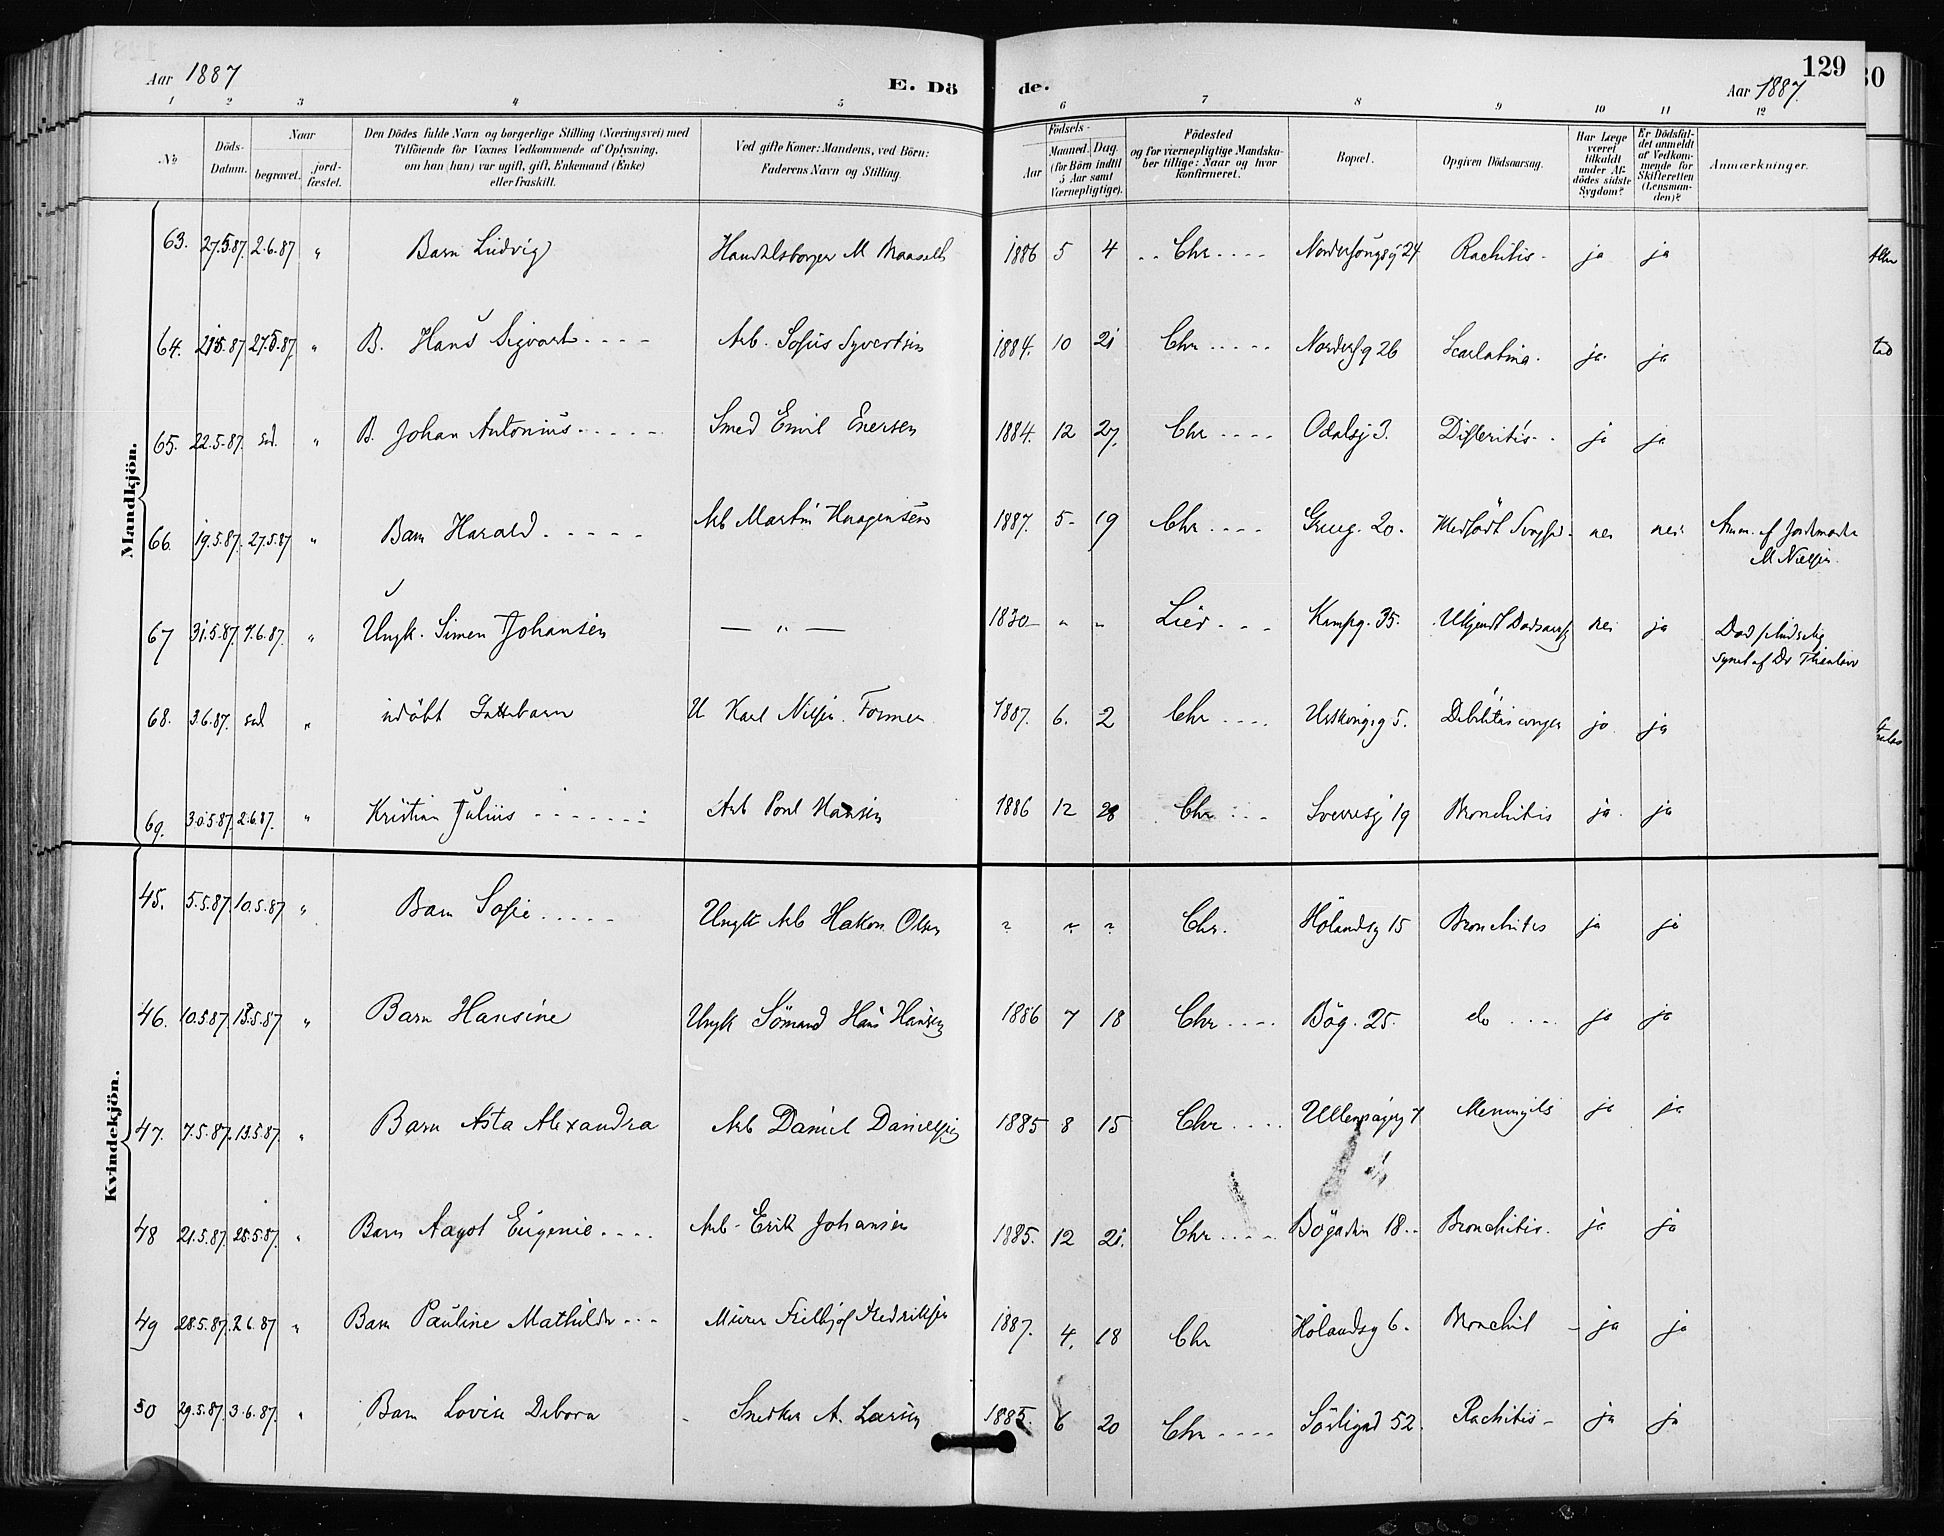 129
30
Aar 1887
E. Dö
de.
Aar 1887.
1 2 3 4 5 6 7 8 9 10 11 12
No
Döds-Datum.
Naar
begravet.
jord-fæstet.
Den Dödes fulde Navn og borgerlige Stilling (Næringsvei) med
Tilföiende for Voxnes Vedkommende af Oplysning,
om han (hun) var ugift, gift, Enkemand (Enke)
eller fraskilt.
Ved gifte Koner: Mandens, ved Börn:
Faderens Navn og Stilling.
Födsels-
Aar
Maaned. Dag.
(for Börn indtil
5 Aar samt
Værnepligtige).
Födested
og for værnepligtige Mandsku-
ber tillige: Naar og hvor
konfirmeret.
Bopæl.
Opgiven Dödsaarsag.
Har Læge
været
tilkaldt
under Af-
dödes sidste
Sygdom?
Er Dödsfal-
det anmeldt
af Vedkom-
mende for
Skifteretten
(Lensman-
den)?
Anmærkninger.
Mandkjön.
63. 27.5.87. 2.6.87 " Barn Ludvig Handelsborger M 1886 5 4 Chr Nordersöngsg 24 Rachitis ja ja
64. 21.5.87 27.5.87 " B. Hans Sigvart Arb. Sofus Syvertsen 1884. 10 21 Chr Norders g 26 Scarlatina. ja. ja
65. 22.5.87. " B. Johan Antonius Smed Emil Enersen 1884. 12 27. Chr Odalsg 3. Difteritis ja ja
66. 19.5.87. 27.5.87 " Barn Harald Arb Martin Haagensen 1887. 5 19 Chr Grueg. 20. Medfödt nei nei Anm. af Jordmoder
M Nielsen.
67 31.5.87. 7.6.87. " Ungk. Simen Johansen — " — 1830 " " Lier Kampg. 35. Ukjendt Dødsaarsag nei ja Død pludselig
synet af Dr
68. 3.6.87. " udöbt Guttebarn U Karl Nilsen. Former 1887. 6. 2 Chr Urskougsg 5. Debilitas congen ja ja
69. 30.5.87. 2.6.87. " Kristian Julius Arb Poul Hansen 1886 12 28 Chr Sverresg 19 Bronchitis ja. ja
Kvindekjön.
45. 5.5.87. 10.5.87 " Barn Sofie Ungk Arb Hakon Olsen " " " Chr. Hölandsg 15 Bronchites ja ja
46. 10.5.87 13.5.87 " Barn Hansine Ungk Sömand Hans Hansen 1886 7 18 Chr Bög. 25. do ja ja
47. 7.5.87. 13.5.87 " Barn Asta Alexandra Arb Daniel Danielsen 1885 8 15 Chr 7 Meningits ja ja
48 21.5.87. 28.5.87. " Barn Aagot Eugenie Arb. Erik Johansen 1885. 12 21. Chr Bögaden 18 Bronchitis. ja ja
49 28.5.87. 2.6.87 " Barn Pauline Mathilde Murer Fredriksen 1887. 4. 18 Chr Hölandsg 6. Bronchit ja ja
50 29.5.87. 3.6.87. " Barn Lovise Debora Snedker A. Larsen 1885. 6 20 Chr Sörligad 52. Rachitis ja ja